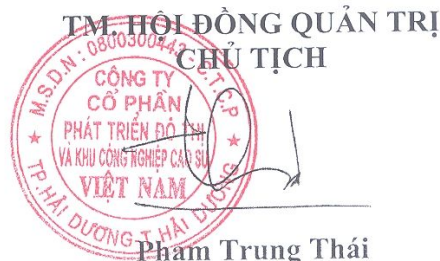 TM. HỘI ĐỒNG QUẢN TRỊ
CHỦ TỊCH
M.S.D.N: 0800300443-C.T.C.P
CÔNG TY
CỔ PHẦN
PHÁT TRIỂN ĐÔ THỊ
VÀ KHU CÔNG NGHIỆP CAO SU
VIỆT NAM
TP.HẢI DƯƠNG T.HẢI DƯƠNG
Phạm Trung Thái